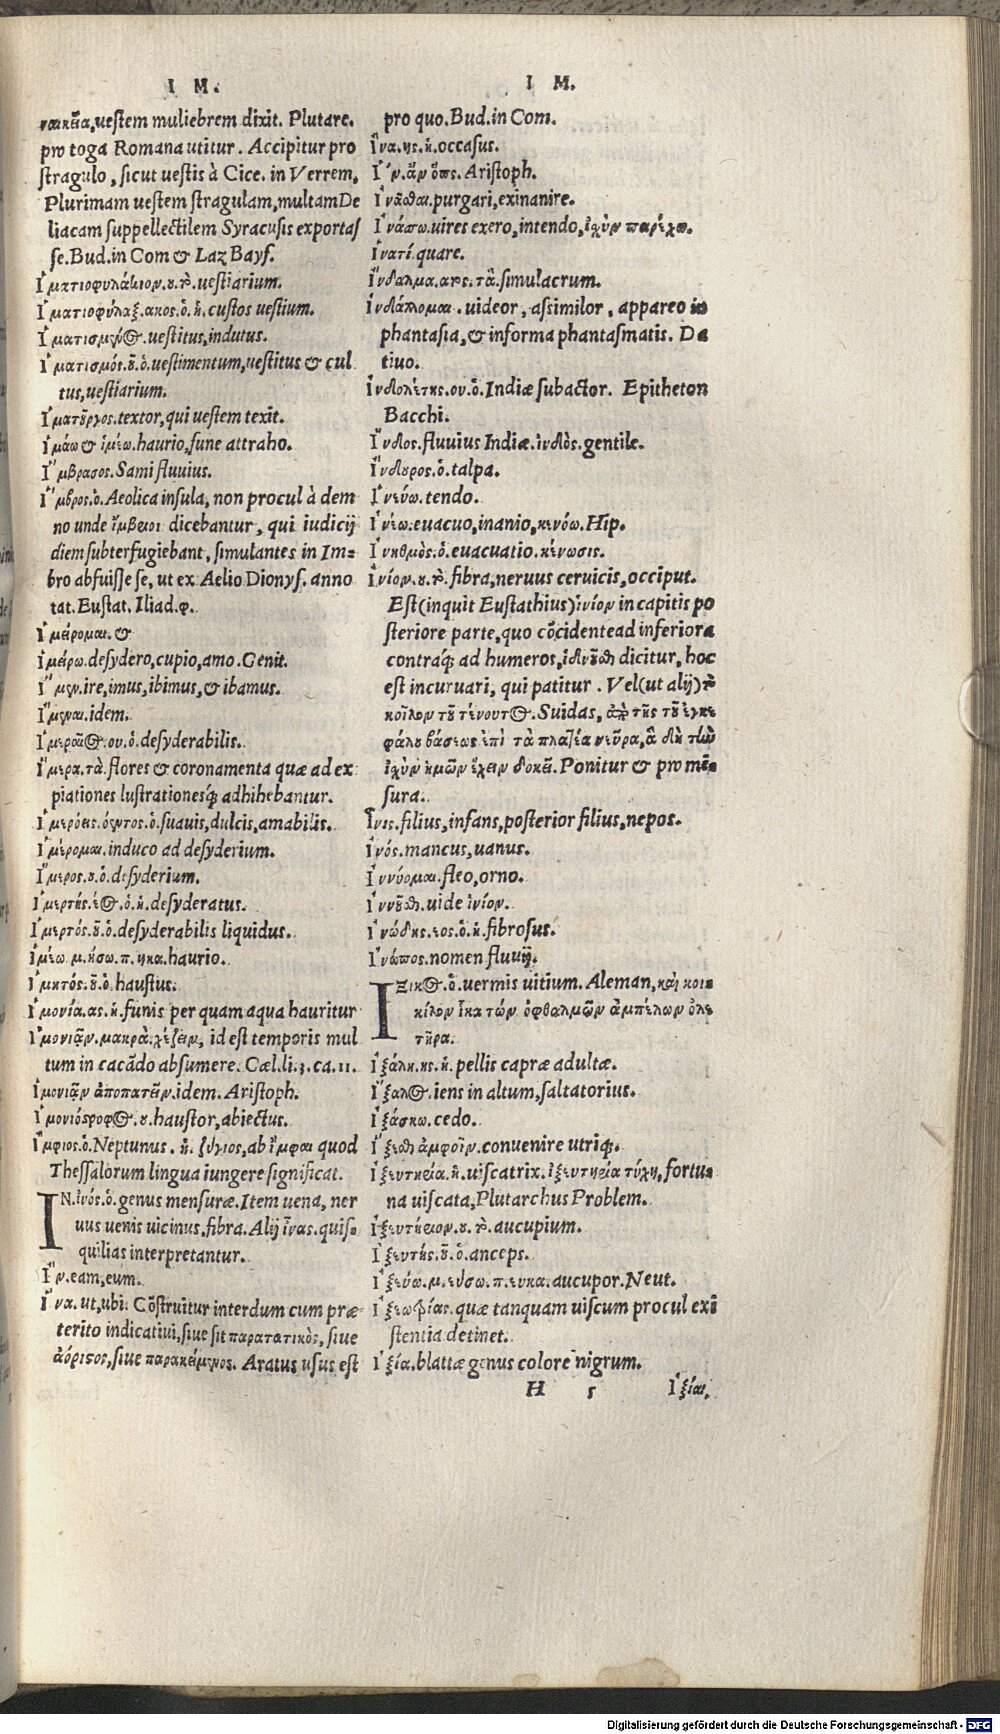 I M.
ναικεῖα, uestem muliebrem dixit. Plutarc.
pro toga Romana utitur. Accipitur pro
stragulo, sicut uestis à Cice. in Verrem,
Plurimam uestem stragulam, multam De
liacam suppellectilem Syracusis exportas
se. Bud. in Com & Laz Bays.
Ἱματιοφυλάκιον. ου. τὸ. uestiarium.
Ἱματιοφύλαξ. ακος. ὁ. ἡ. custos uestium.
Ἱματισμένος. uestitus, indutus.
Ἱματισμός. οῦ. ὁ. uestimentum, uestitus & cul
tus, uestiarium.
Ἱματουργος. textor, qui uestem texit.
Ἱμάω & ἱμέω. haurio, fune attraho.
Ἴμβρασος. Sami fluuius.
Ἴμβρος. ὁ. Aeolica insula, non procul à dem
no unde ἴμβριοι dicebantur, qui iudicij
diem subterfugiebant, simulantes in Im-
bro abfuisse se, ut ex Aelio Dionys. anno
tat. Eustat. Iliad. φ.
Ἱμείρομαι. &
Ἱμείρω. desydero, cupio, amo. Genit.
Ἴμεν. ire, imus, ibimus, & ibamus.
Ἴμεναι. idem.
Ἱμεραῖος. ου. ὁ. desyderabilis.
Ἵμερα. τὰ. flores & coronamenta quæ ad ex
piationes lustrationesq; adhibebantur.
Ἱμερόεις. όεντος. ὁ. suauis, dulcis, amabilis.
Ἱμέρομαι. induco ad desyderium.
Ἵμερος. ου. ὁ. desyderium.
Ἱμερτής. έος. ὁ. ἡ. desyderatus.
Ἱμερτός. οῦ. ὁ. desyderabilis liquidus.
Ἱμέω. μ. ήσω. π. ηκα. haurio.
Ἱμητός. οῦ. ὁ. haustus.
Ἱμονία. ας. ἡ. funis per quam aqua hauritur
Ἱμονιᾶν. μακρὰ. χέζειν, id est temporis mul
tum in cacãdo absumere. Cæl. li. 3. ca. 11.
Ἱμονιᾶν ἀποπατεῖν. idem. Aristoph.
Ἱμονιόστροφος. ου. haustor, abiectus.
Ἴμφιος. ὁ. Neptunus. ἡ. ζύγιος, ab ἴμφαι quod
Thessalorum lingua iungere significat.
IN. ἰνός. ὁ. genus mensuræ. Item uena, ner
uus uenis uicinus, fibra. Alij ἶνας. quis-
quilias interpretantur.
Ἵν. eam, eum.
Ἵνα. ut, ubi. Cõstruitur interdum cum præ
terito indicatiui, siue sit παρατατικὸς, siue
ἀόριστος, siue παρακείμενος. Aratus usus est
I M.
pro quo. Bud. in Com.
Ἵνα. ης. ἡ. occasus.
Ἵν. ἄν ὅπως. Aristoph.
Ἰνᾶσθαι. purgari, exinanire.
Ἰνάσω. uires exero, intendo, ἰσχὺν παρέχω.
Ἱνατί. quare.
Ἴνδαλμα. ατος. τὰ. simulacrum.
Ἰνδάλλομαι. uideor, assimilor, appareo in
phantasia, & informa phantasmatis. Da
tiuo.
Ἰνδολέτης. ου. ὁ. Indiæ subactor. Epitheton
Bacchi.
Ἴνδος. fluuius Indiæ. ἰνδὸς. gentile.
Ἴνδουρος. ὁ. talpa.
Ἰνεύω. tendo.
Ἰνέω. euacuo, inanio, κενόω. Hip.
Ἰνηθμὸς. ὁ. euacuatio. κένωσις.
Ἰνίον. ου. τὸ. fibra, neruus ceruicis, occiput.
Est (inquit Eustathius) ἰνίον in capitis po
steriore parte, quo cõcidente ad inferiora
contraq; ad humeros, ἰδνοῦσθαι dicitur, hoc
est incuruari, qui patitur. Vel (ut alij) τὸ
κοῖλον τοῦ τένοντος. Suidas, ἀπὸ τῆς τοῦ ἐγκε
φάλου βάσεως ἐπὶ τὰ πλατέα νεῦρα, ἃ δὴ τὴν
ἰσχὺν ἡμῶν ἔχειν δοκεῖ. Ponitur & pro mẽ-
sura.
Ἶνις. filius, infans, posterior filius, nepos.
Ἰνός. mancus, uanus.
Ἰννύομαι. fleo, orno.
Ἰνοῦσθαι. uide ἰνίον.
Ἰνώδης. εος. ὁ. ἡ. fibrosus.
Ἰνώπος. nomen fluuij.
IΞικος. ὁ. uermis uitium. Aleman, καὶ ποι-
κίλον ἶκα τῶν ὀφθαλμῶν ἀμπέλων ὀλε
τῆρα.
Ἰξάλη. ης. ἡ. pellis capræ adultæ.
Ἴξαλος. iens in altum, saltatorius.
Ἰξάσκω. cedo.
Ἵξεσθαι ἀμφοῖν. conuenire utriq;.
Ἰξευτηρία. ἡ. uiscatrix. ἰξευτηρία τύχη, fortu-
na uiscata, Plutarchus Problem.
Ἰξευτήριον. ου. τὸ. aucupium.
Ἰξευτής. οῦ. ὁ. anceps.
Ἰξεύω. μ. εύσω. π. ευκα. aucupor. Neut.
quæ tanquam uiscum procul exi
stentia detinet.
Ἰξία. blattæ genus colore nigrum.
H 5
Ἰξίας.
Digitalisierung gefördert durch die Deutsche Forschungsgemeinschaft - DFG